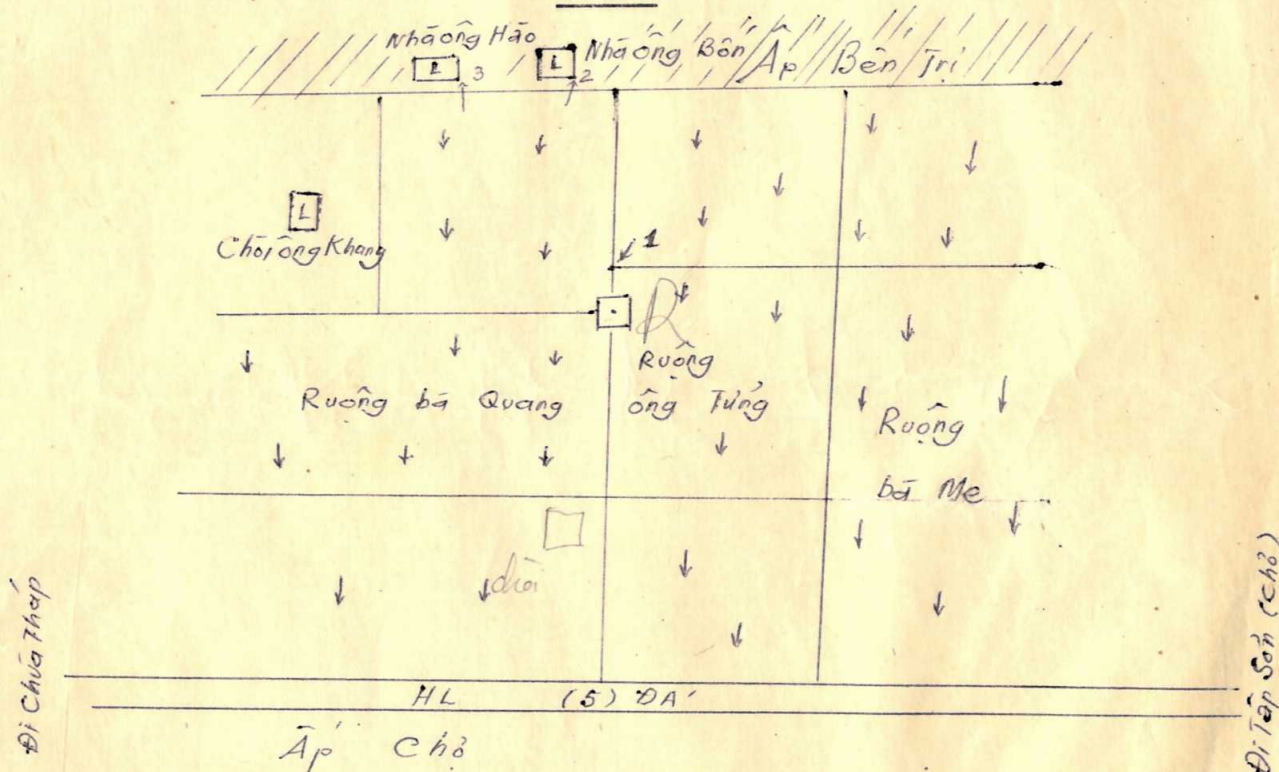 Nhà ông Hào
L 3
L 2
Nhà ông Bốn
Ấp Bến Trị
L
Chòi ông Khang
1
Ruộng ông Tửng
Ruộng bà Quang
Ruộng bà Me
chòi
Đi Chùa Tháp
Đi Tập Sơn (chợ)
HL (5) ĐÁ
Ấp Chợ